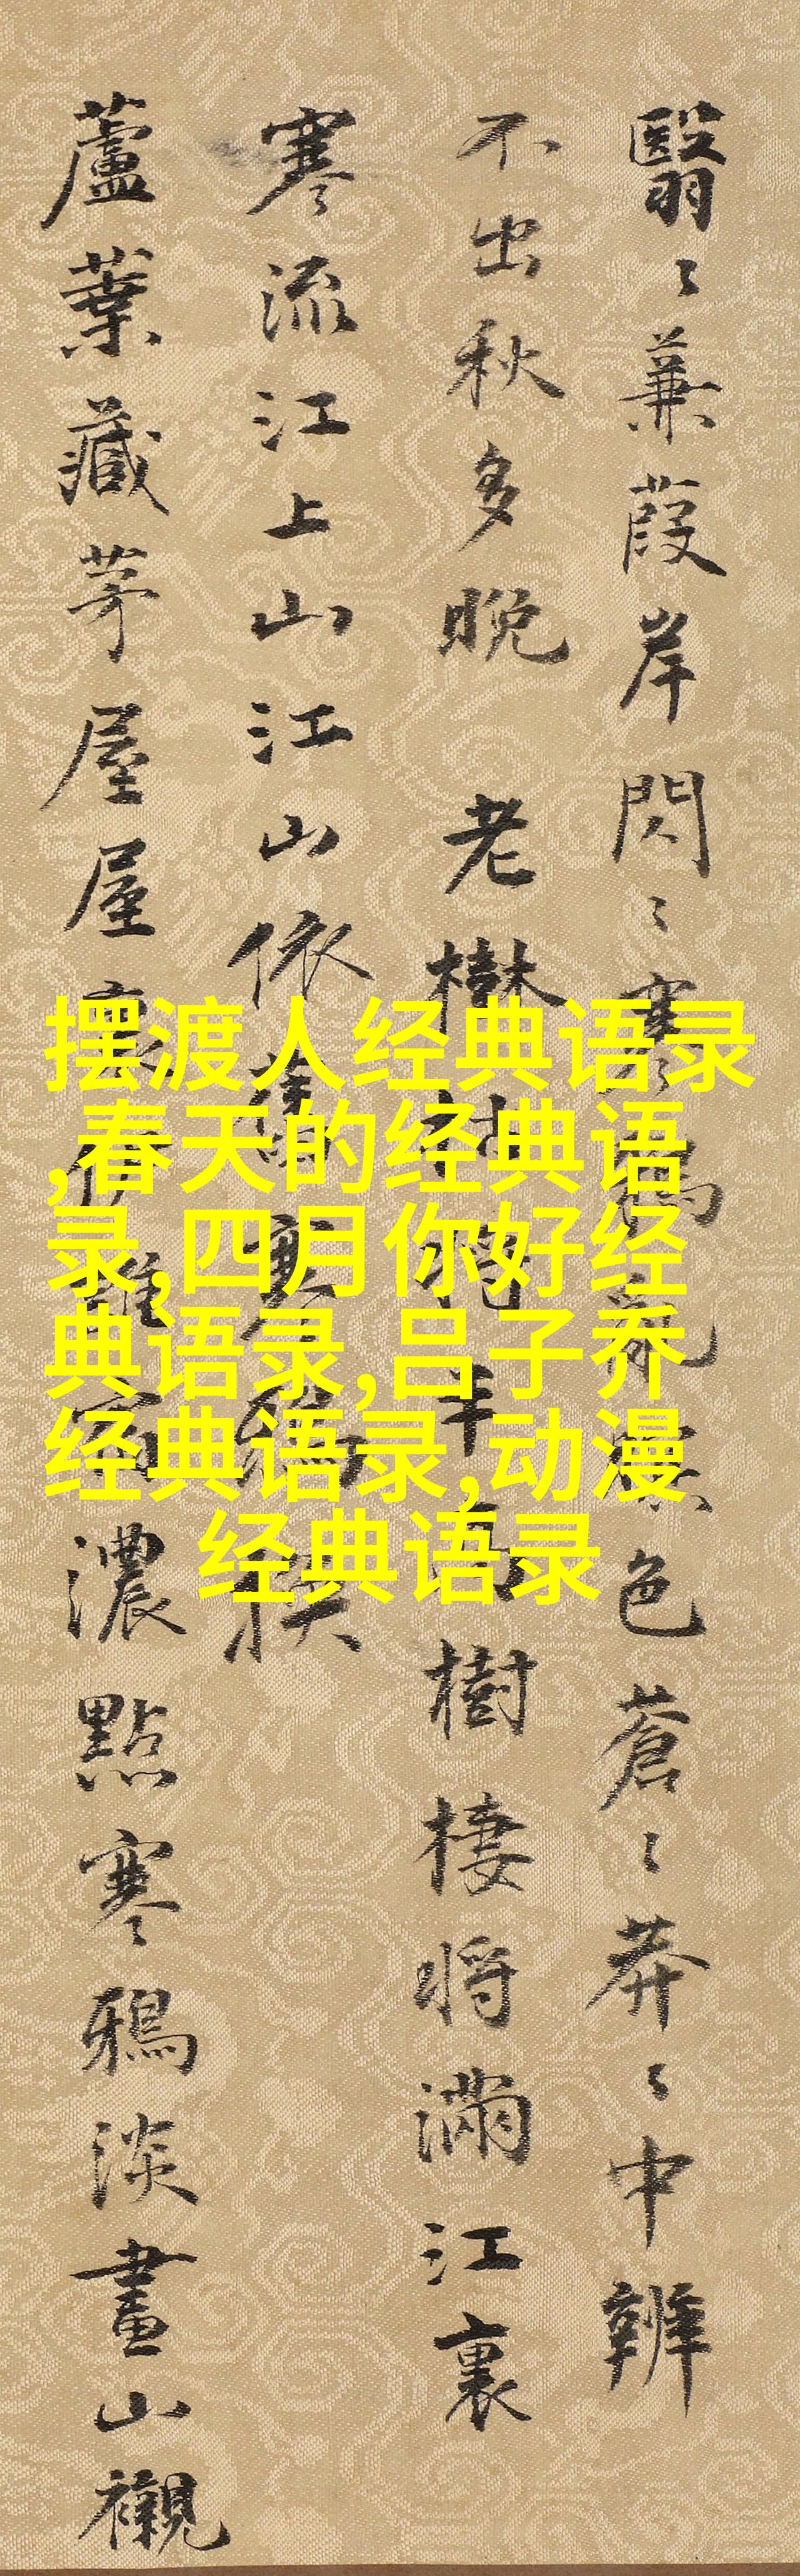 翳〻蒹葭岸閃〻寒鴉亂色蒼〻莽〻中辨
不出秋多晚 老樹枯將半樹棲將滿江裏
寒流江上山江山依舊寒鴉
蘆葉藏茅屋屋裏誰濃點寒鴉淡畫山襯
摆渡人经典语录
,春天的经典语
录,四月你好经
典语录,吕子乔
经典语录,动漫
经典语录